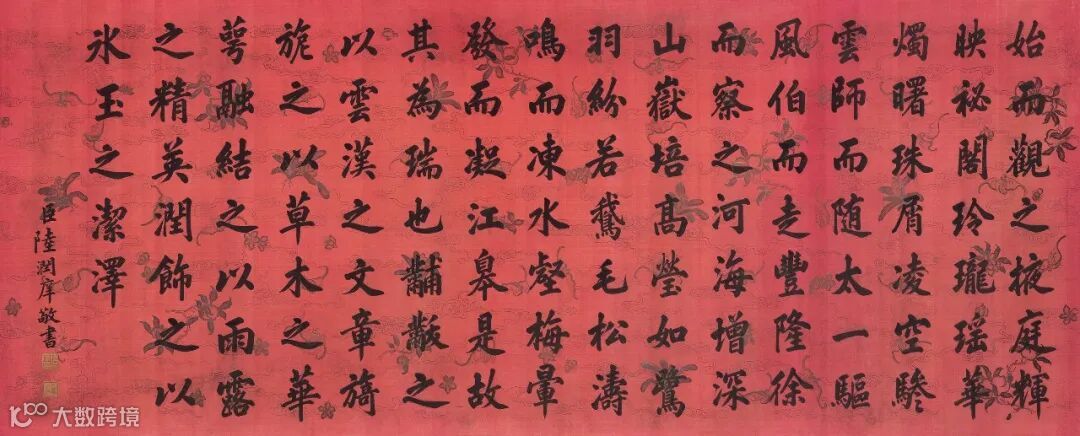 始而觀之掖庭輝
映秘閣玲瓏瑶華
燭曙珠屑凌空驂
雲師而随太一驅
風伯而走豐隆徐
而察之河海增深
山嶽培髙瑩如鷺
羽紛若鵞毛松濤
鳴而凍水壑梅暈
發而凝江皋是故
其為瑞也黼黻之
以雲漢之文章旖
旎之以草木之華
萼融結之以雨露
之精英潤飾之以
氷玉之潔澤
臣陸潤庠敬書
大数跨境